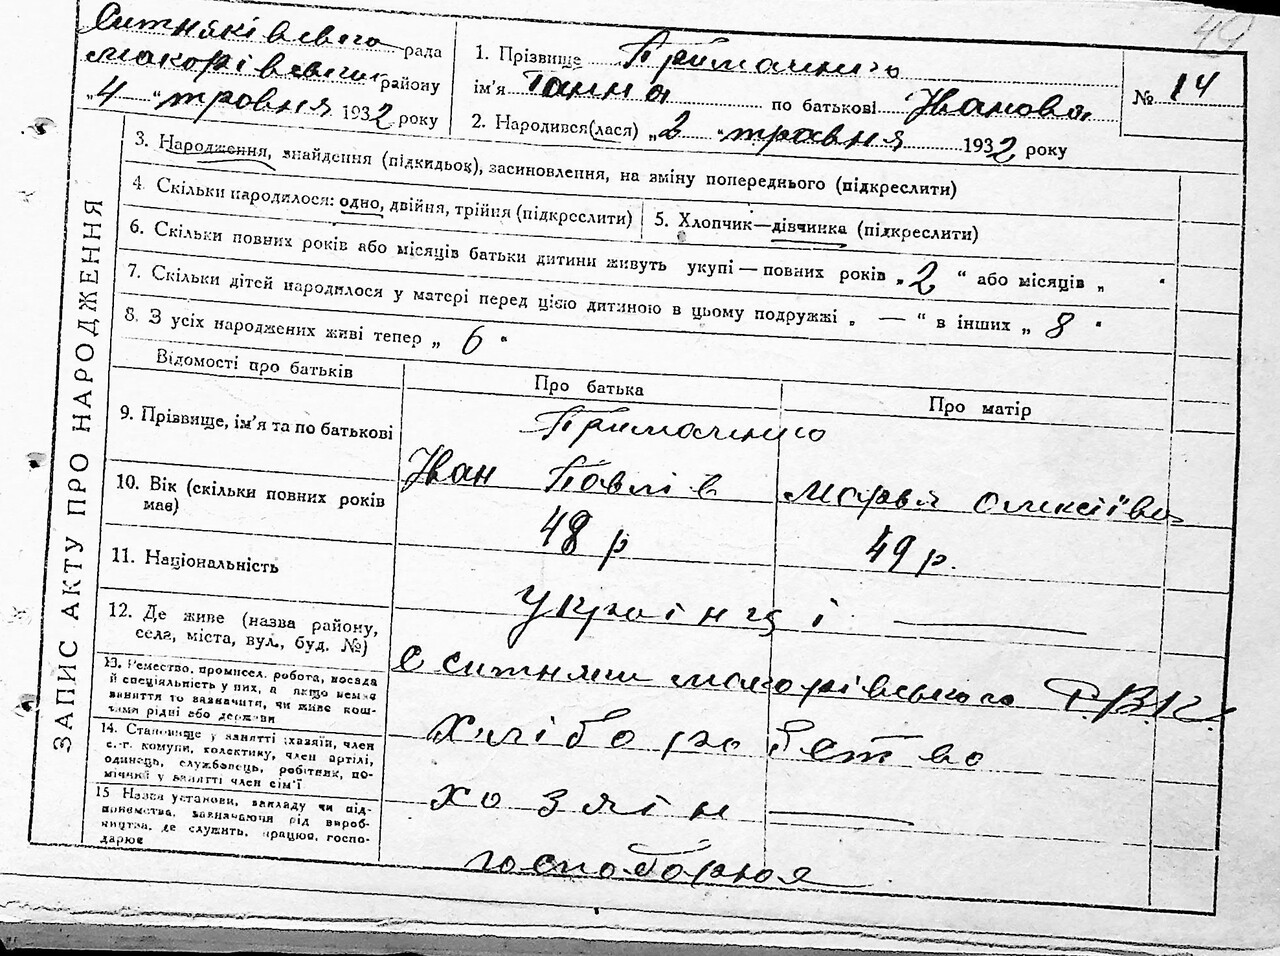 49
Ситняківсього рада
Макорівсьеги району
„4 “ травня 1932 року
1. Прізвище Приймаченко
ім'я Ганна по батькові Іванова
2. Народився(лася) „2 “ травня 1932 року
№ 14
ЗАПИС АКТУ ПРО НАРОДЖЕННЯ
3. Народження, знайдення (підкидьок), засиновлення, на зміну попереднього (підкреслити)
4. Скільки народилося: одно, двійня, трійня (підкреслити)
5. Хлопчик—дівчинка (підкреслити)
6. Скільки повних років або місяців батьки дитини живуть укупі — повних років „ 2 “ або місяців „ “
7. Скільки дітей народилося у матері перед цією дитиною в цьому подружжі „ — “ в інших „ 8 “
8. З усіх народжених живі тепер „ 6 “
Відомості про батьків
Про батька
Про матір
9. Прізвище, ім'я та по батькові
Іван Павлів
Марья Олексіїва
10. Вік (скільки повних років має)
48 р
49 р.
11. Національність
українці
12. Де живе (назва району, села, міста, вул., буд. №)
с Ситняки Макорівського Р.В.К.
13. Ремество, промисел, робота, посада й спеціяльність у них, а якщо нема заняття то зазначити, чи живе коштами рідні або держави
хліборобство
14. Становище у занятті (хазяїн, член с.-г. комуни, колективу, член артілі, одинець, службовець, робітник, помічний у занятті член сім'ї
хозяін
15 Назва установи, закладу чи підприємства, зазначаючи рід виробництва, де служить, працює, господарює
господорюя